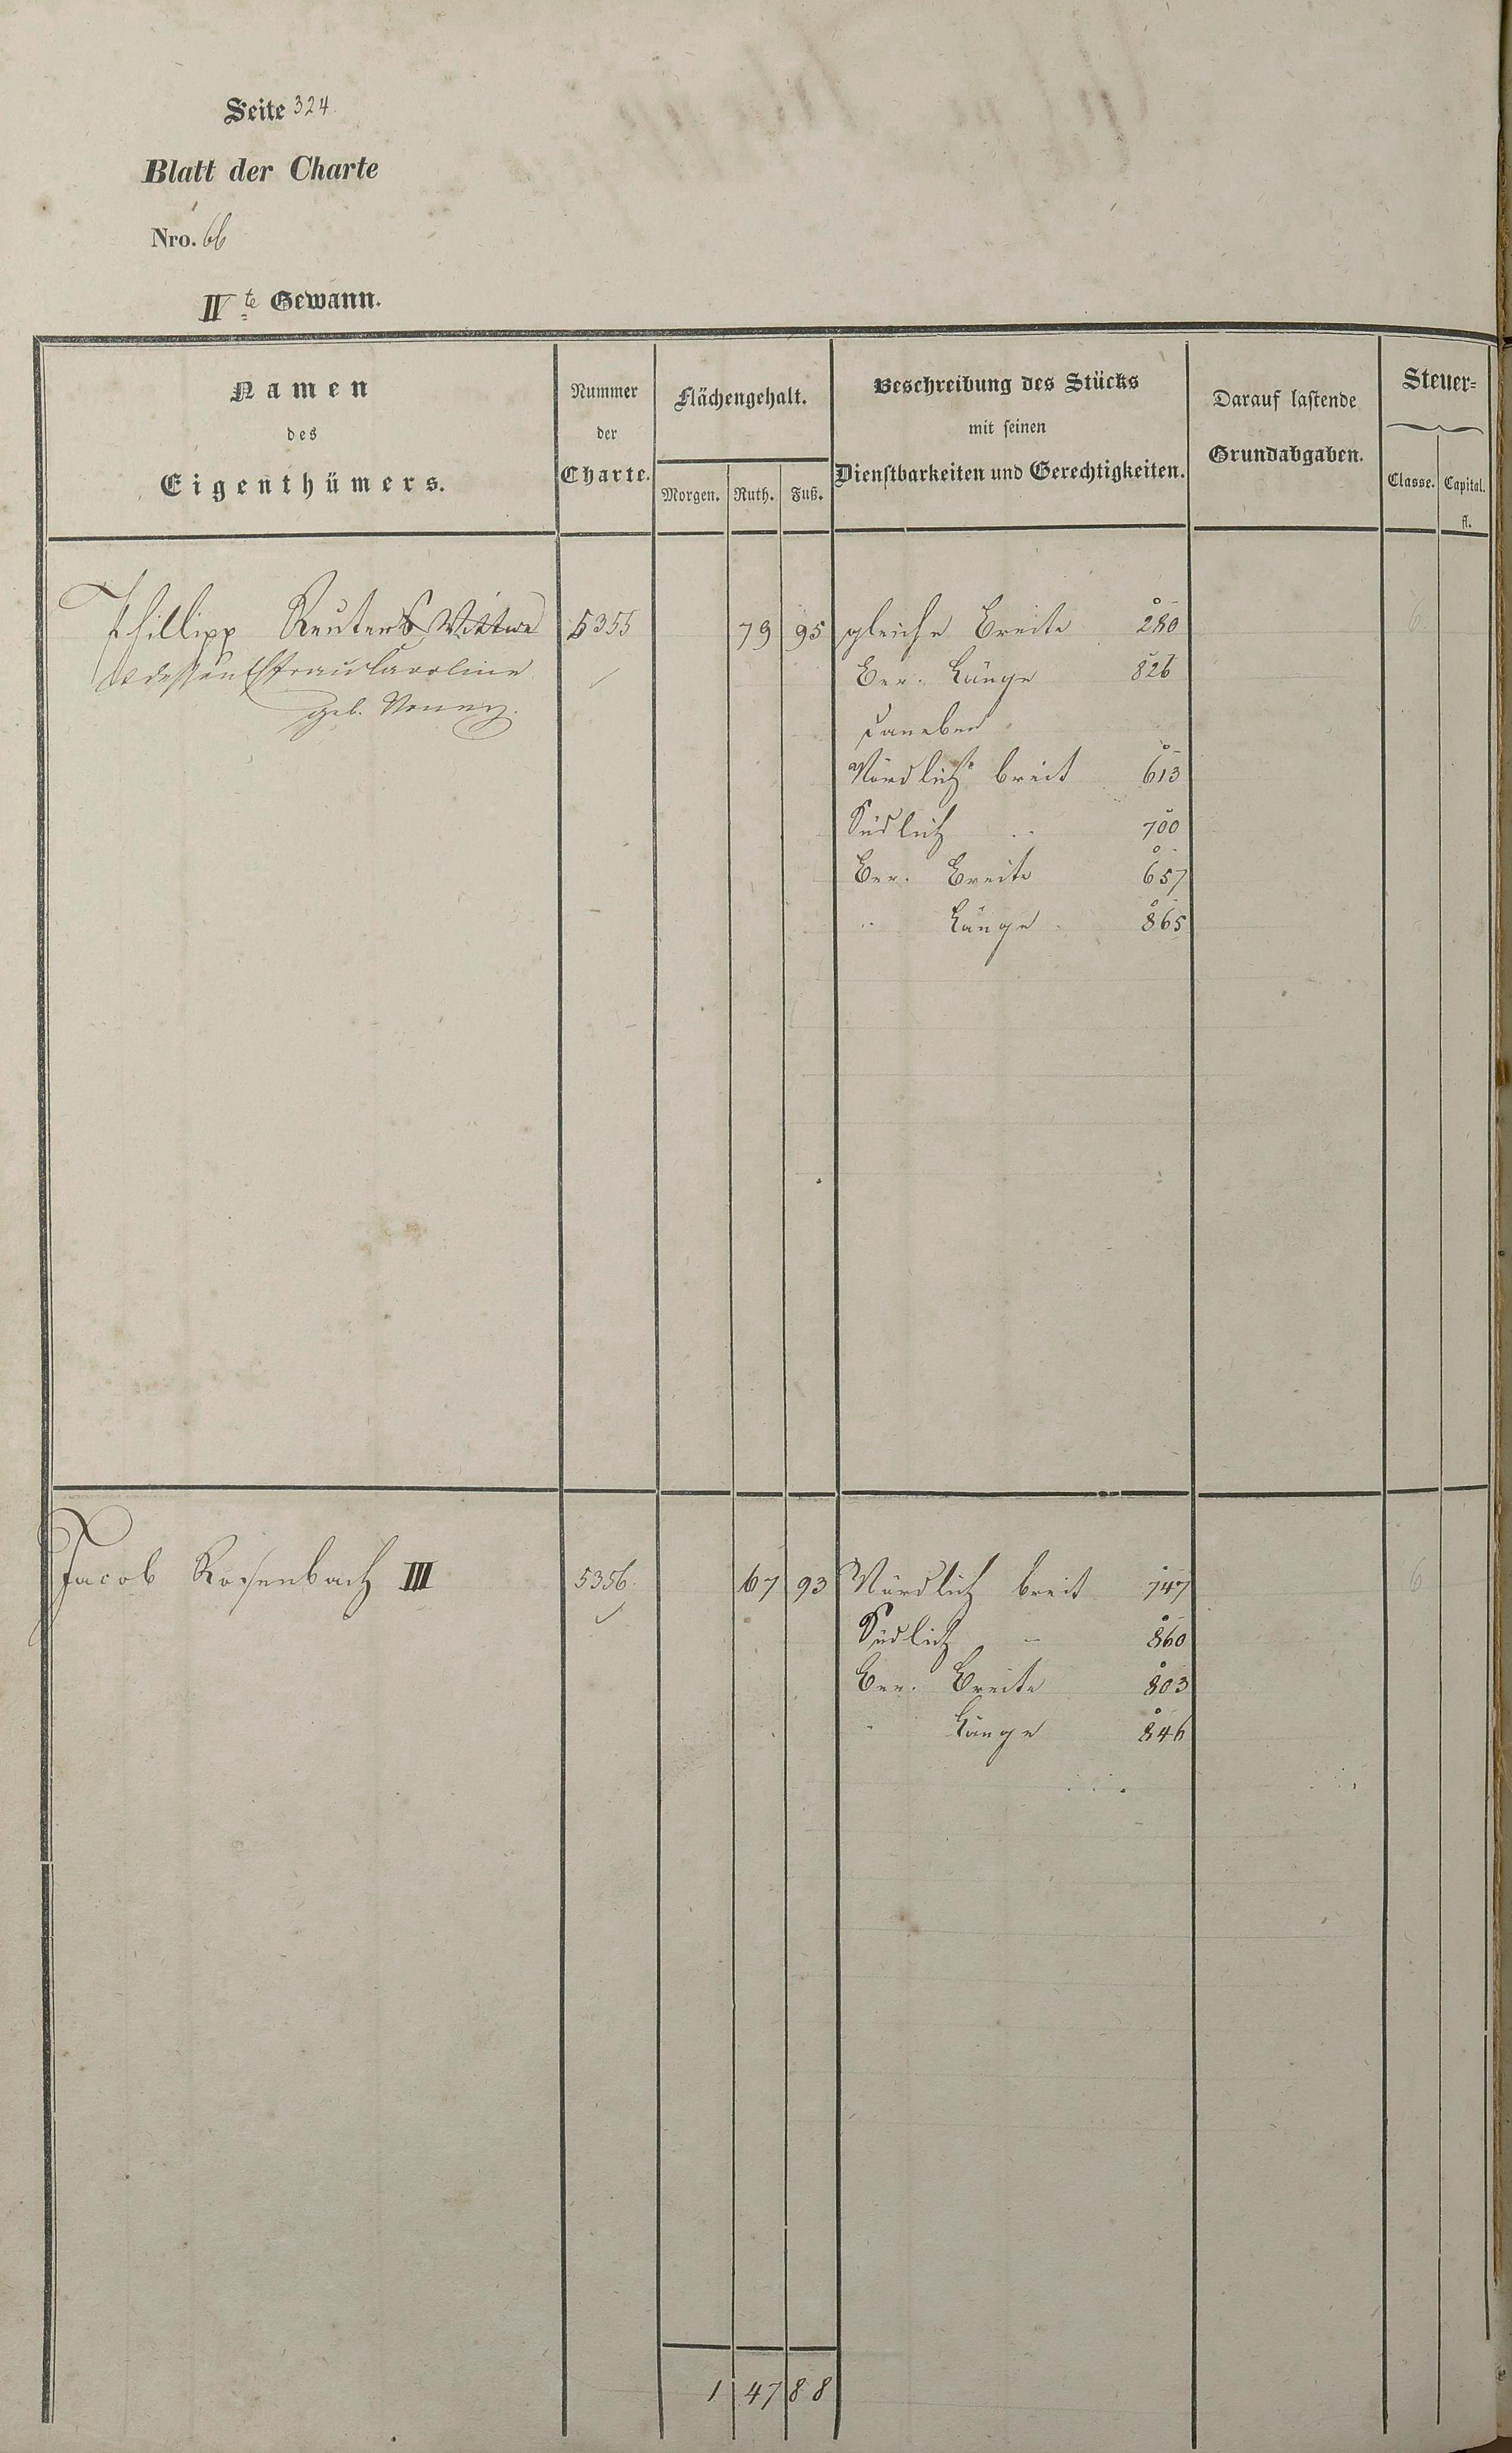 Seite 324
Blatt der Charte
Nro. 66
IV te Gewann.
Namen
des
Eigenthümers.
Nummer
der
Charte.
Flächengehalt.
Morgen. Ruth. Fuß.
Beschreibung des Stücks
mit seinen
Dienstbarkeiten und Gerechtigkeiten.
Darauf lastende
Grundabgaben.
Steuer=
Classe. Capital.
fl.
Phillipp Reuters Wittwe 5355 79 95 gleiche Breite 280 6
& dessen Ehefrau Caroline Ber. Länge 826
geb. daneben
Nördlich breit 613
Südlich " 700
Ber. Breite 657
" Länge 865
Jacob Rosenbach III 5356 67 93 Nördlich breit 747 6
Südlich " 860
Ber. Breite 803
" Länge 846
1 47 88